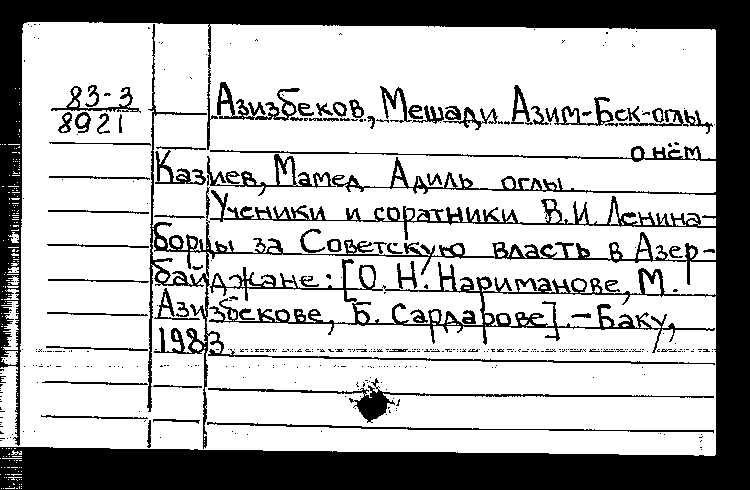 83-3
8921
Азизбеков, Мешади Азим-Бек-оглы,
о нём
Казиев, Мамед Адиль оглы.
Ученики и соратники В.И. Ленина-
борцы за Советскую власть в Азер-
байджане: [О Н. Нариманове, М.
Азизбекове, Б. Сардарове].-Баку,
1983.